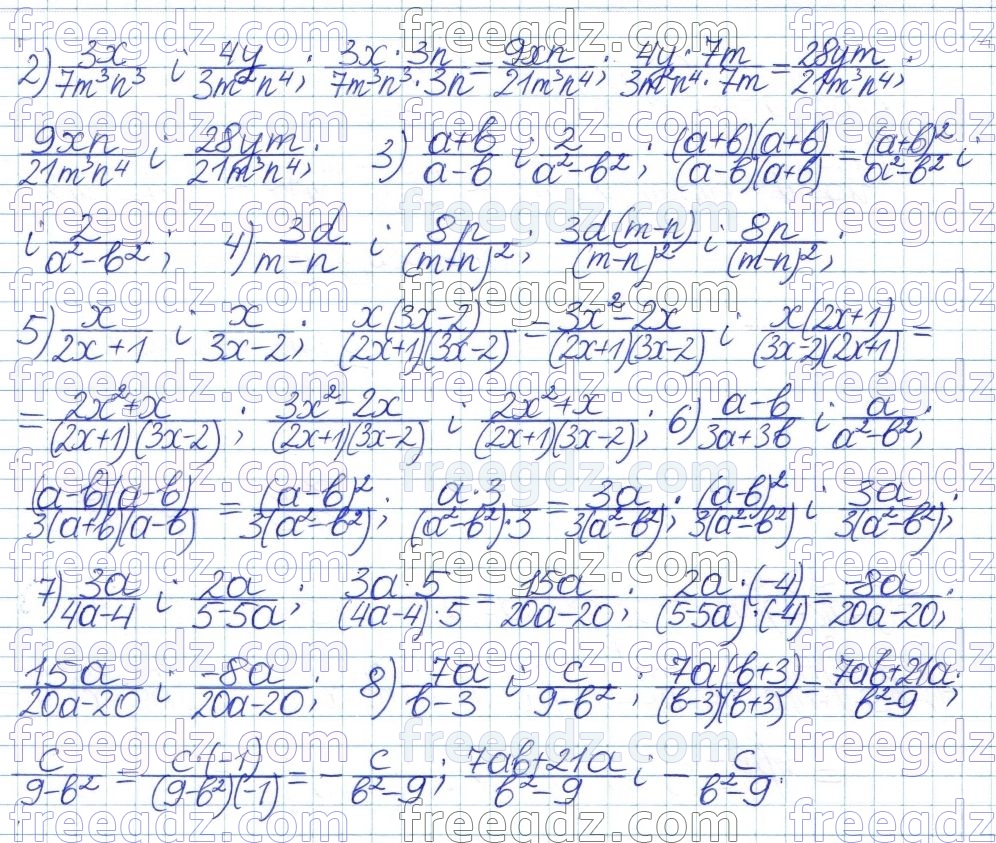 2) 3x/(7m³n³) і 4y/(3m²n⁴); (3x·3n)/(7m³n³·3n) = 9xn/(21m³n⁴); (4y·7m)/(3m²n⁴·7m) = 28ym/(21m³n⁴);
9xn/(21m³n⁴) і 28ym/(21m³n⁴); 3) (a+b)/(a-b) і 2/(a²-b²); ((a+b)(a+b))/((a-b)(a+b)) = (a+b)²/(a²-b²) і
і 2/(a²-b²); 4) 3d/(m-n) і 8p/(m-n)²; 3d(m-n)/(m-n)² і 8p/(m-n)²;
5) x/(2x+1) і x/(3x-2); x(3x-2)/((2x+1)(3x-2)) = (3x²-2x)/((2x+1)(3x-2)) і x(2x+1)/((3x-2)(2x+1)) =
= (2x²+x)/((2x+1)(3x-2)); (3x²-2x)/((2x+1)(3x-2)) і (2x²+x)/((2x+1)(3x-2)); 6) (a-b)/(3a+3b) і a/(a²-b²);
((a-b)(a-b))/(3(a+b)(a-b)) = (a-b)²/(3(a²-b²)); (a·3)/((a²-b²)·3) = 3a/(3(a²-b²)); (a-b)²/(3(a²-b²)) і 3a/(3(a²-b²));
7) 3a/(4a-4) і 2a/(5-5a); (3a·5)/((4a-4)·5) = 15a/(20a-20); (2a·(-4))/((5-5a)·(-4)) = -8a/(20a-20);
15a/(20a-20) і -8a/(20a-20); 8) 7a/(b-3) і c/(9-b²); 7a(b+3)/((b-3)(b+3)) = (7ab+21a)/(b²-9);
c/(9-b²) = c·(-1)/((9-b²)(-1)) = -c/(b²-9); (7ab+21a)/(b²-9) і -c/(b²-9).